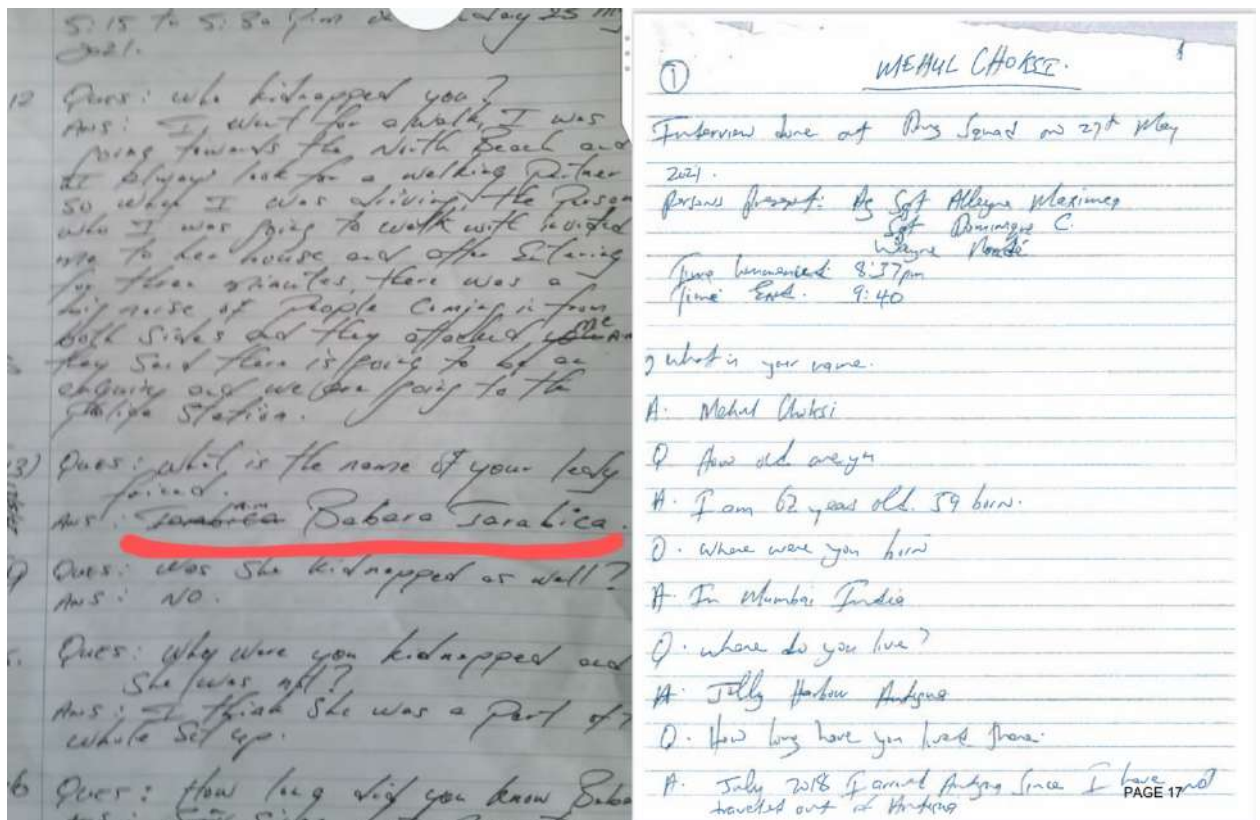 5:15 to 5:30 pm day 25
2021.
12 Ques: who kidnapped you?
Ans: I went for a walk, I was
going towards the North Beach and
I always look for a walking Partner
so when I was driving, the Person
who I was going to walk with invited
me to her house and after Sitaring
for three minutes, there was a
big noise of People Coming in from
both Sides and they attacked me
they Said there is going to be an
enquiry and we are going to the
Police Station.
3) Ques: what is the name of your lady
friend.
Ans: Babara Jarabica.
Ques: was She kidnapped as well?
Ans: NO.
Ques: why were you kidnapped and
She was not?
Ans: I think She was a Part of
whole Set up.
6 Ques: How long did you know Baba
1
MEHUL CHOKSI.
Interview done at Drug Squad on 27th May
2021.
Persons Present: Ag Sgt Alleyne Maximea
Sgt Dominique C.
Wayne
Time Commenced: 8:37pm
Time End. 9:40
What is your name.
A. Mehul Choksi
Q How old are you
A. I am 62 years old. 59 born.
Q. Where were you born
A. In Mumbai India
Q. where do you live?
A. Jolly Harbour Antigua
Q. How long have you lived there.
A. July 2018 I arrived Antigua Since I have not
travelled out of Antigua
PAGE 17